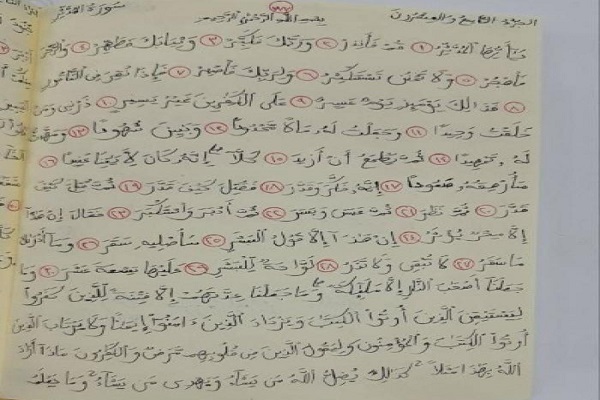 الجزء التاسع والعشرون بسم الله الرحمن الرحيم سورة المدثر
يأيها المدثر ١ قم فأنذر ٢ وربك فكبر ٣ وثيابك فطهر ٤ والرجز
فاهجر ٥ ولا تمنن تستكثر ٦ ولربك فاصبر ٧ فإذا نقر في الناقور
٨ فذلك يومئذ يوم عسير ٩ على الكفرين غير يسير ١٠ ذرني ومن
خلقت وحيدا ١١ وجعلت له مالا ممدودا ١٢ وبنين شهودا ١٣ ومهدت
له تمهيدا ١٤ ثم يطمع أن أزيد ١٥ كلا إنه كان لأيتنا عنيدا ١٦
سأرهقه صعودا ١٧ إنه فكر وقدر ١٨ فقتل كيف قدر ١٩ ثم قتل كيف
قدر ٢٠ ثم نظر ٢١ ثم عبس وبسر ٢٢ ثم أدبر واستكبر ٢٣ فقال إن هذا
إلا سحر يؤثر ٢٤ إن هذا إلا قول البشر ٢٥ سأصليه سقر ٢٦ وما أدرىك
ما سقر ٢٧ لا تبقي ولا تذر ٢٨ لواحة للبشر ٢٩ عليها تسعة عشر ٣٠ وما
جعلنا أصحب النار إلا ملئكة وما جعلنا عدتهم إلا فتنة للذين كفروا
ليستيقن الذين أوتوا الكتب ويزداد الذين ءامنوا إيمنا ولا يرتاب الذين
أوتوا الكتب والمؤمنون وليقول الذين في قلوبهم مرض والكفرون ماذا أراد
الله بهذا مثلا كذلك يضل الله من يشاء ويهدي من يشاء وما يعلم